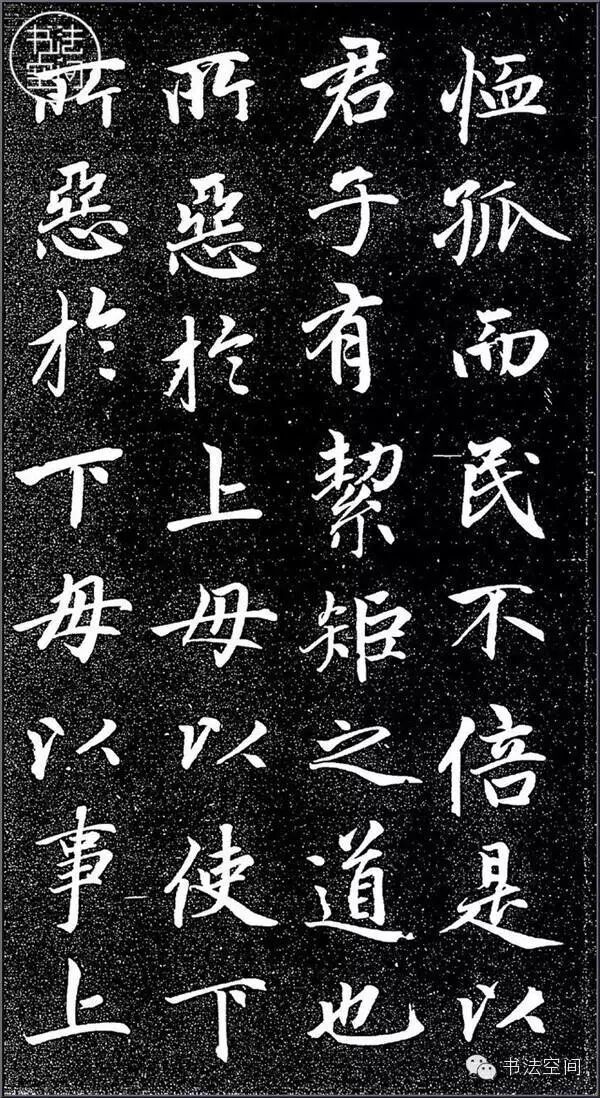 恤孤而民不倍是以
君子有絜矩之道也
所惡於上毋以使下
所惡於下毋以事上
书法空间
书法空间